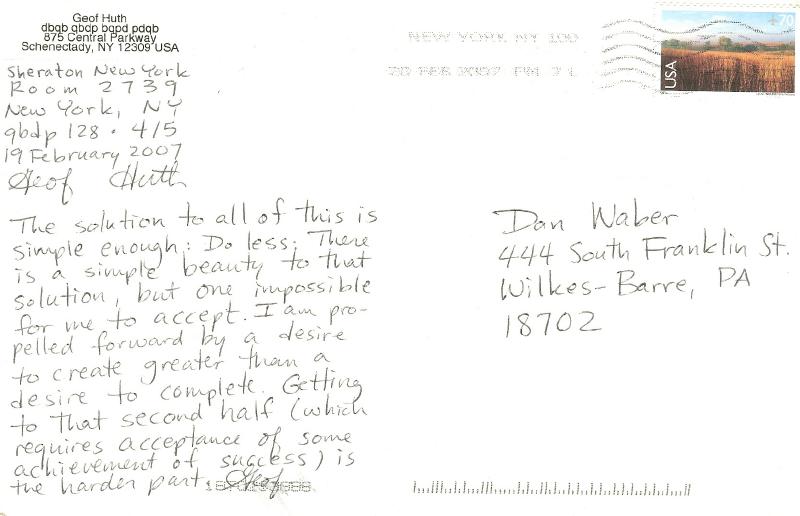 Geof Huth
dbqb qbdp bqpd pdqb
875 Central Parkway
Schenectady, NY 12309 USA
Sheraton New York
Room 2739
New York, NY
qbdp 128 • 4/5
19 February 2007
Geof Huth
The solution to all of this is
simple enough: Do less. There
is a simple beauty to that
solution, but one impossible
for me to accept. I am pro-
pelled forward by a desire
to create greater than a
desire to complete. Getting
to that second half (which
requires acceptance of some
achievement of success) is
the harder part. Geof
NEW YORK NY 100
20 FEB 2007 PM 7 L
70
USA
Dan Waber
444 South Franklin St.
Wilkes-Barre, PA
18702